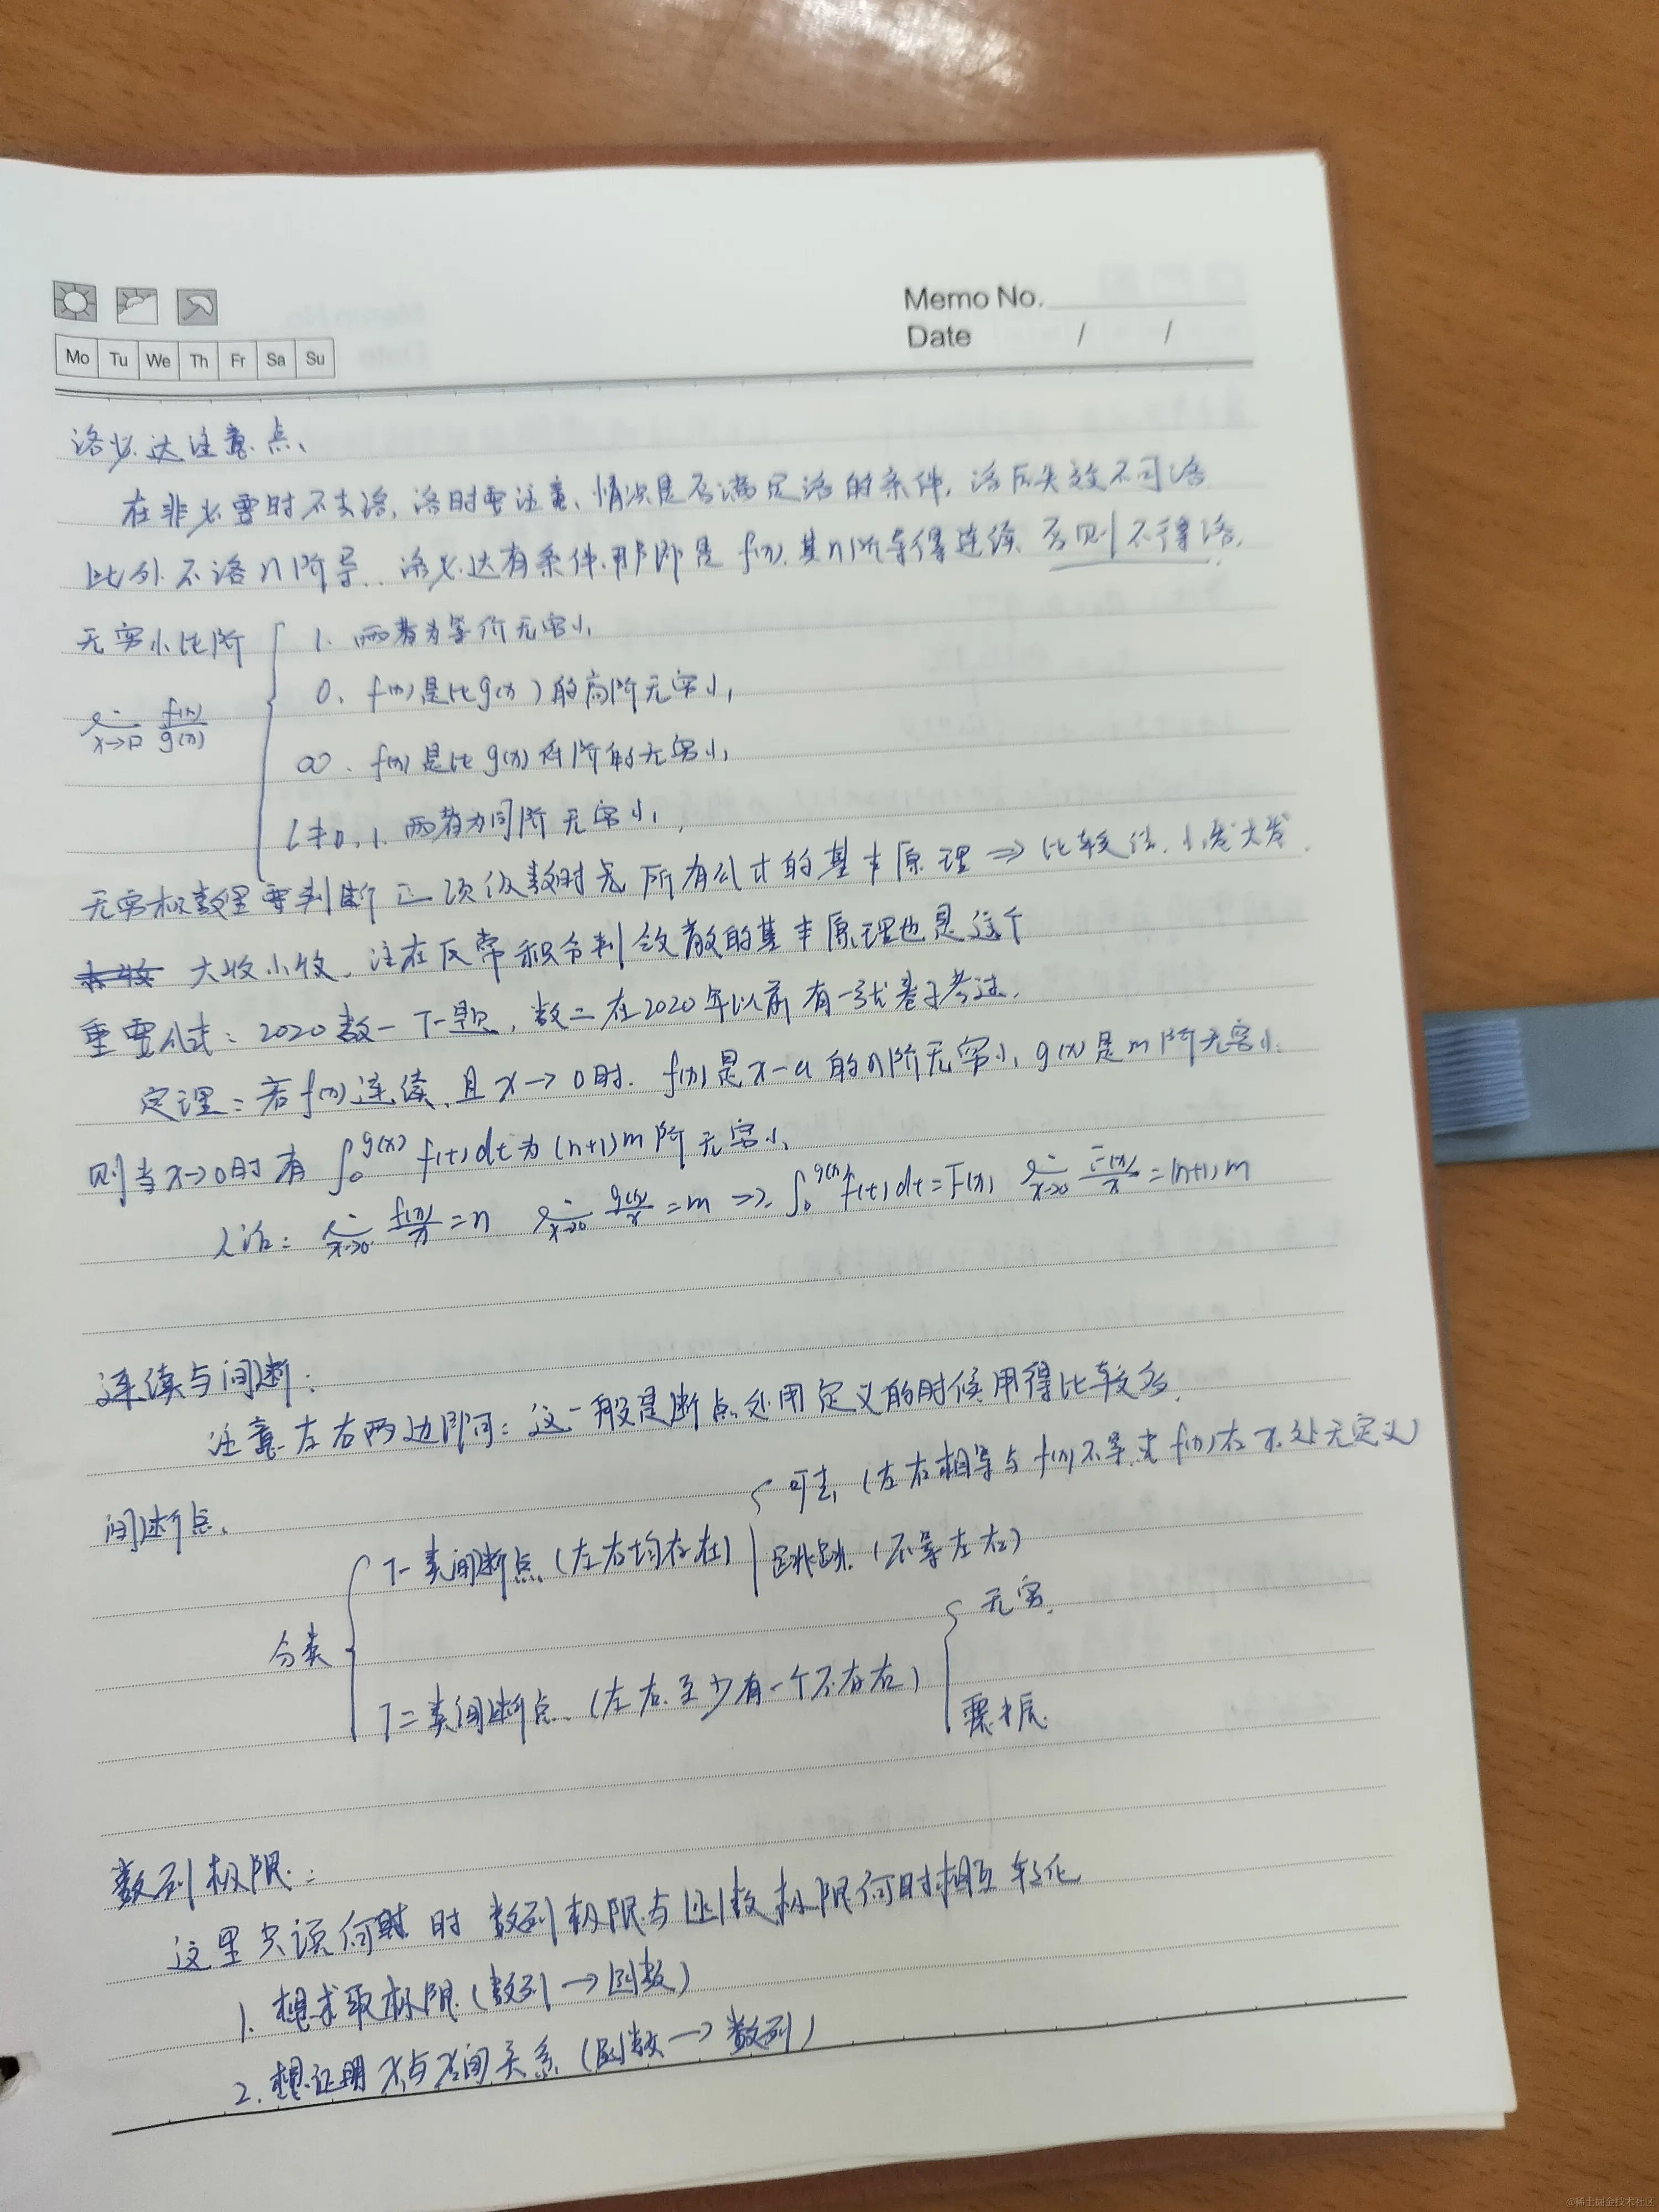 Memo No.
Date / /
Mo Tu We Th Fr Sa Su
洛必达注意点、
在非必要时不去洛,洛时要注意、情况是否满足洛的条件,洛后失效不可洛
此外不洛n阶导.洛必达有条件.那即是 f(x).其n阶导得连续 否则不得洛.
无穷小比阶
1. 两者为等价无穷小
0. f(x)是比g(x)的高阶无穷小,
lim x→0 f(x)/g(x)
∞. f(x)是比g(x)低阶的无穷小,
l≠0,1. 两者为同阶无穷小,
无穷极数里要判断正项级数时 所有公式的基本原理 ⇒ 比较法.小发大发.
大收小收.注在反常积分判敛散的基本原理也是这个
重要公式:2020数一 T一题,数二在2020年以前有一张卷子考过.
定理:若f(x)连续、且x→0时.f(x)是x-a的n阶无穷小,g(x)是m阶无穷小.
则当x→0时有 ∫₀^g(x) f(t)dt为(n+1)m阶无穷小、
人话:lim x→0 f(x)/x =n lim x→0 g(x)/x =m ⇒ ∫₀^g(x) f(t)dt=F(x) lim x→0 F(x)/x =(n+1)m
连续与间断:
注意左右两边即可:这一般是断点处用定义的时候用得比较多.
间断点.
可去,(左右相等与f(x)不等,或f(x)在x。处无定义)
T一类间断点(左右均存在)
跳跃.(不等左右)
分类
无穷.
T二类间断点、(左右.至少有一个不存在)
震荡
数列极限:
这里只谈何时 时 数列极限与函数极限何时相互转化
1. 想求取极限(数列→函数)
2. 想证明 间关系(函数→数列)
@稀土掘金技术社区